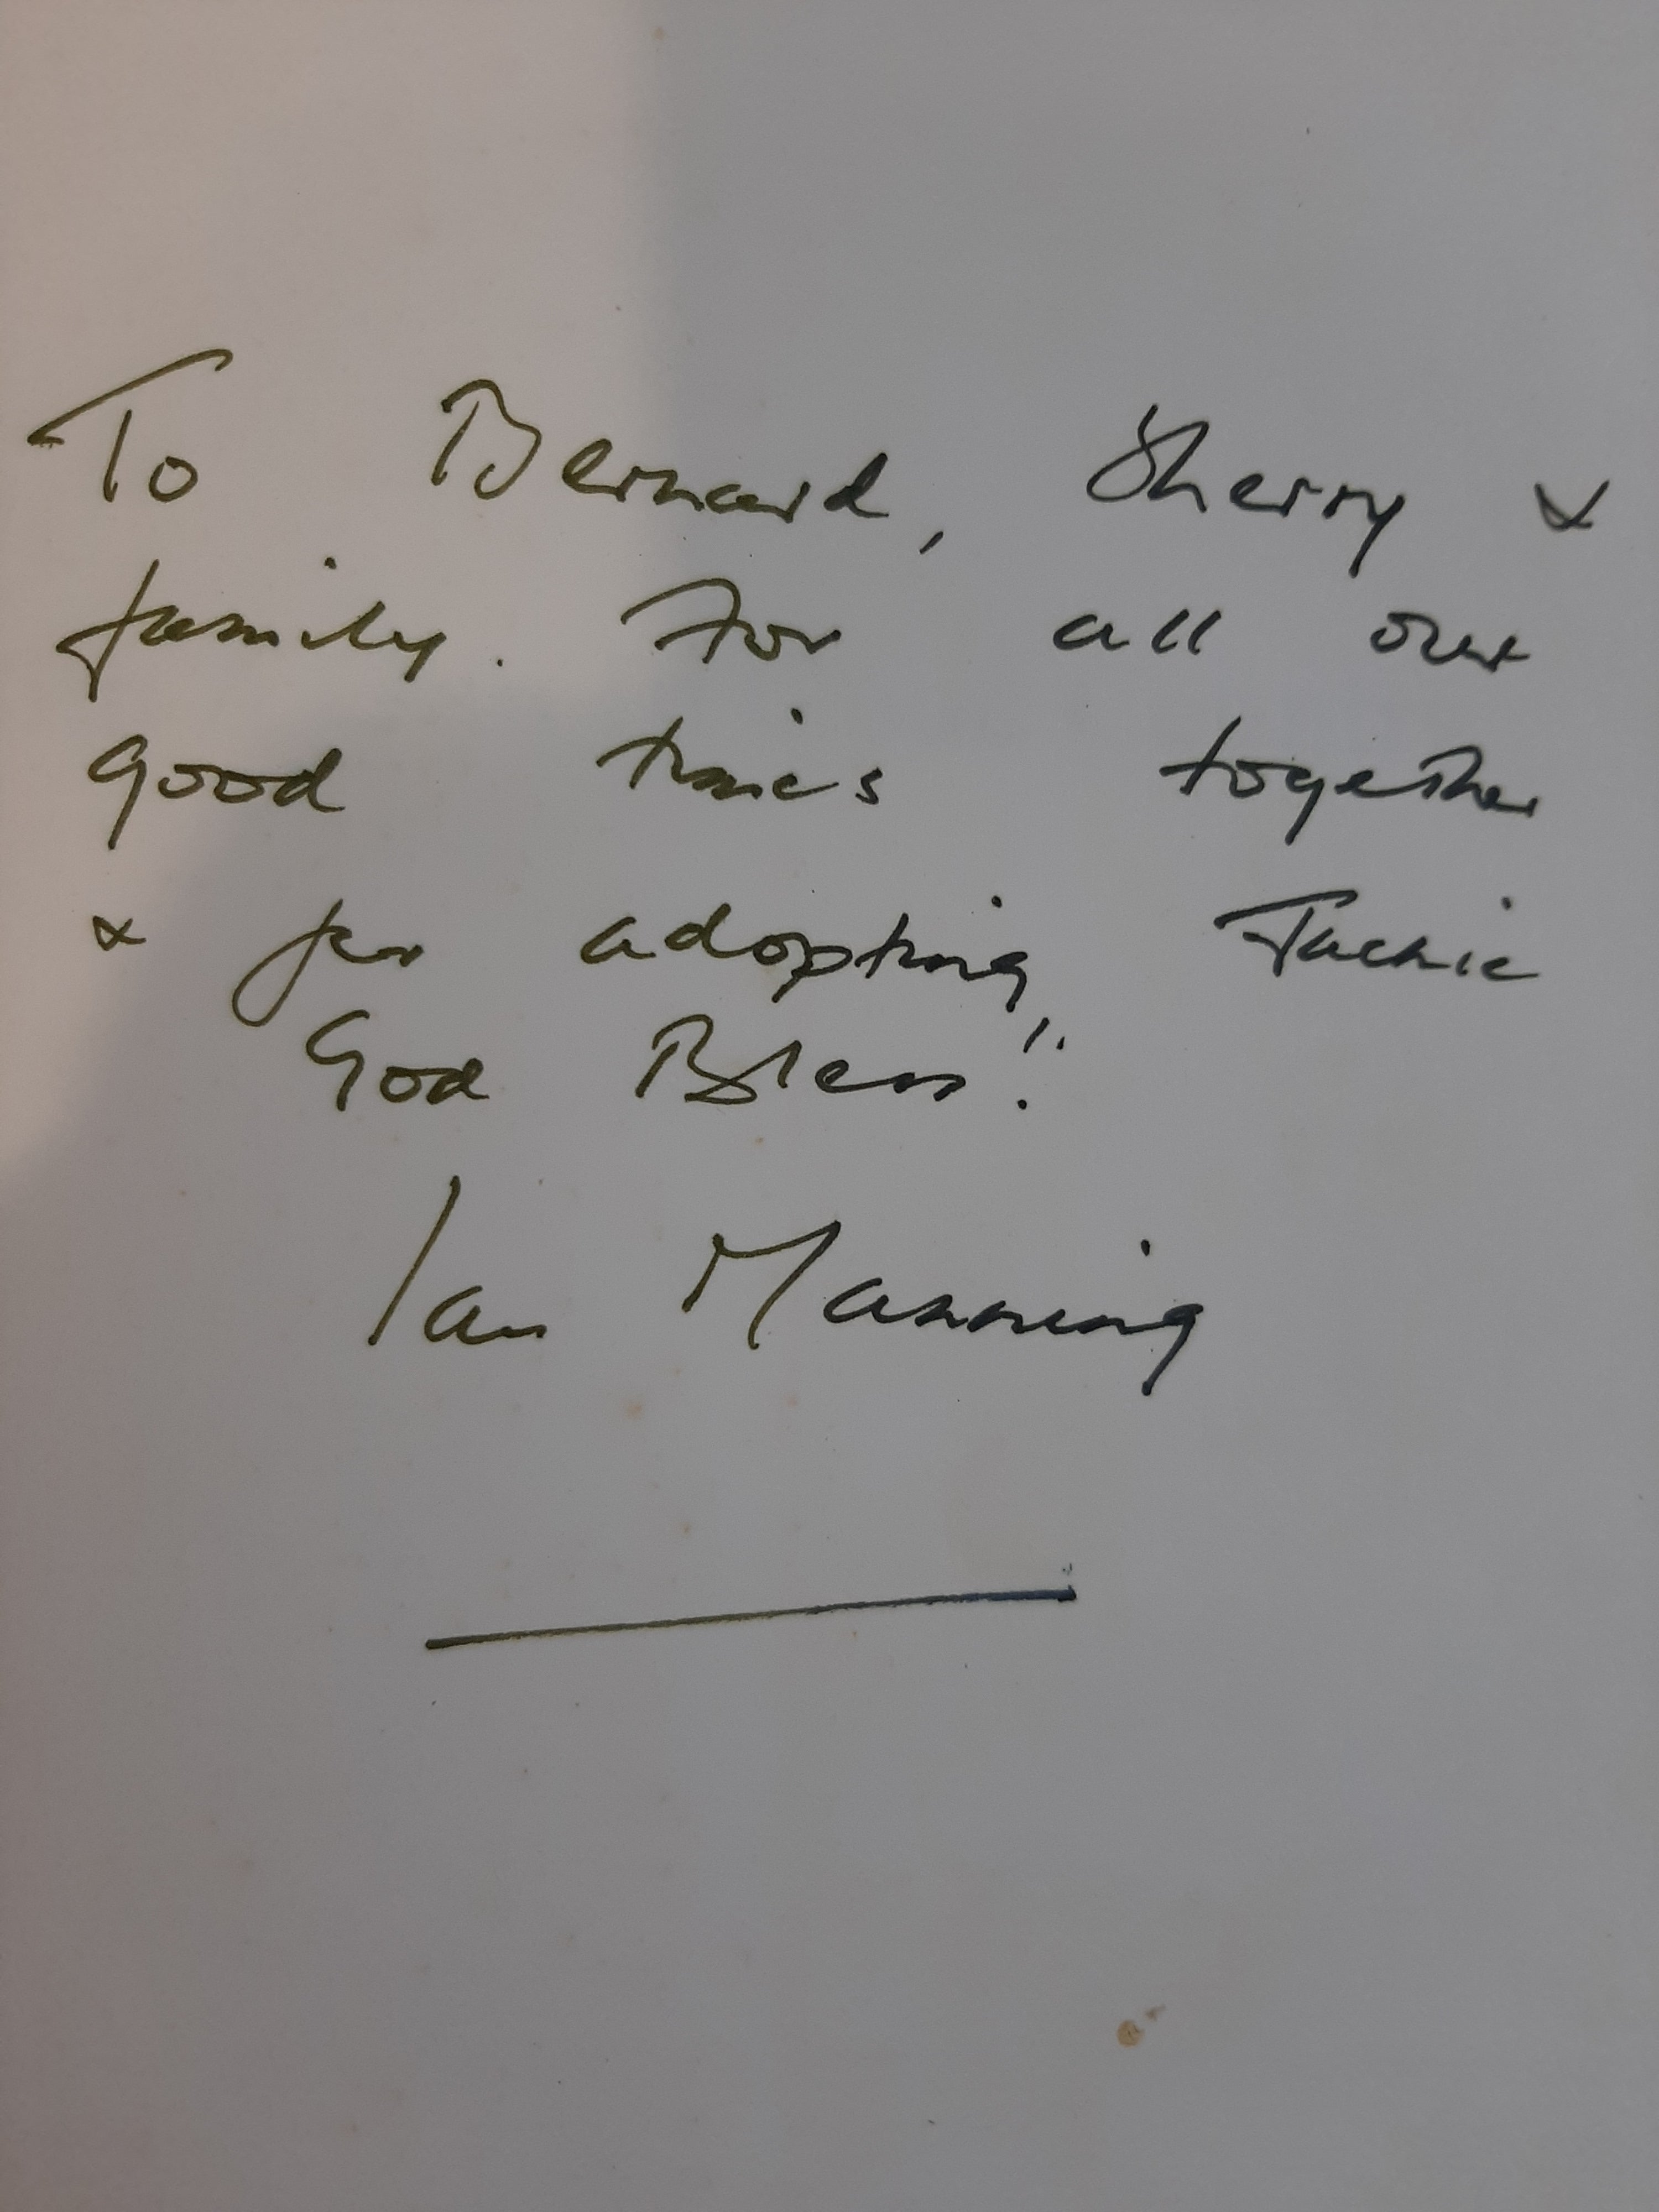 To Bernard, Sherry &
family. For all our
good times together
& for adopting Jackie
God Bless!!
Ian Manning